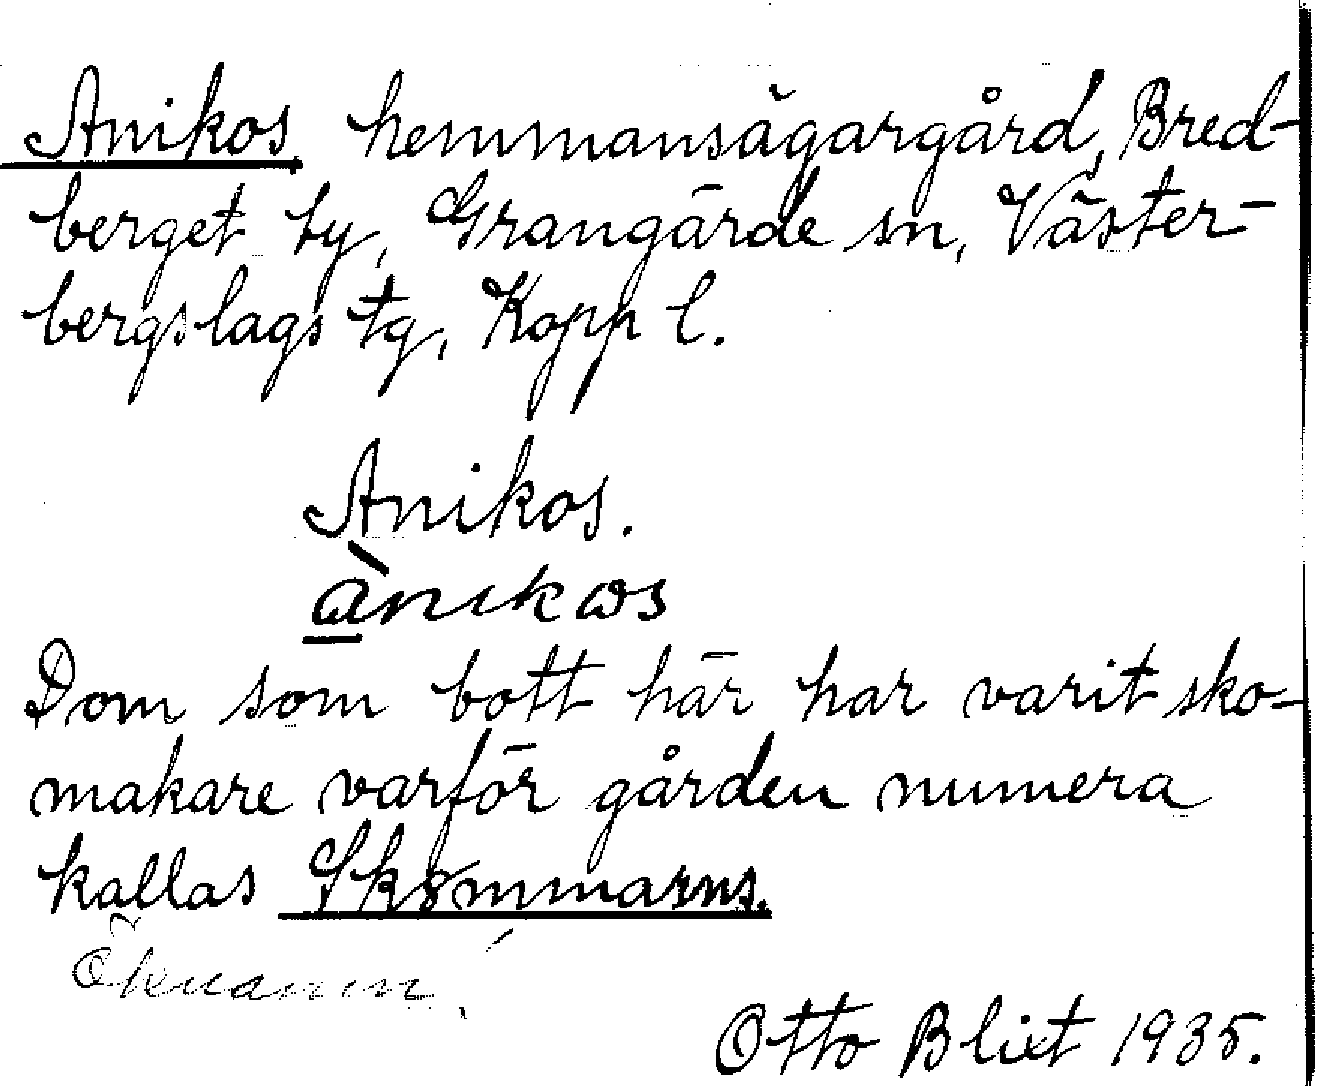 Anikos, hemmansägargård, Bred-
berget by, Grangärde sn, Väster-
bergslags tg, Kopp l.
Anikos.
ànikωs
Dom som bott här har varit sko-
makare varför gården numera
kallas Skømmarns.
Öknamn.
Otto Blixt 1935.